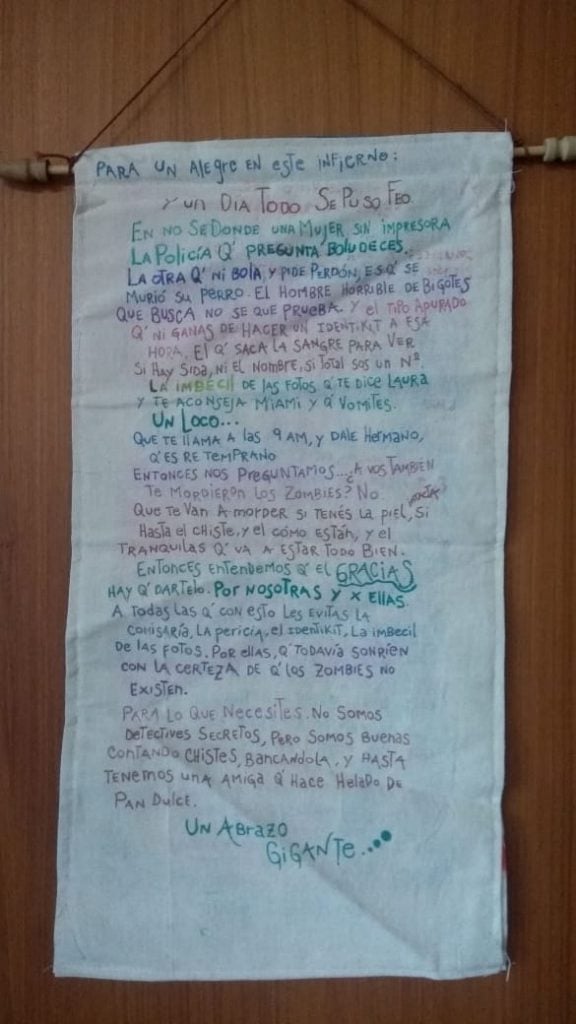 PARA UN Alegre EN este INFIERNO:
Y UN DIA TODO SE PUSO FEO
EN NO SE DONDE UNA MUJER SIN IMPRESORA
LA POLICÍA Q' PREGUNTA BOLUDECES.
LA OTRA Q' NI BOLA, Y PIDE PERDÓN, ES Q' SE
MURIÓ SU PERRO. EL HOMBRE HORRIBLE DE BIGOTES
QUE BUSCA NO SE QUE PRUEBA. Y el TIPO APURADO
Q' NI GANAS DE HACER UN IDENTIKIT A ESA
HORA. EL Q' SACA LA SANGRE PARA VER
SI HAY SIDA, NI EL NOMBRE, SI TOTAL SOS UN Nº.
LA IMBECIL DE LAS FOTOS Q' TE DICE LAURA
Y TE ACONSEJA MIAMI Y Q' VOMITES.
UN LOCO...
QUE TE llAMA A las 9 AM, Y DALE HERMANO,
Q' ES RE TEMPRANO
ENTONCES NOS PREGUNTAMOS... ¿A VOS TAMBIEN
TE MORDIERON LOS ZOMBIES? NO.
QUE TE VAN A MORDER SI TENÉS LA PIEL, SI
HASTA EL CHISTE, Y EL CÓMO ESTÁN, Y EL
TRANQUILAS Q' VA A ESTAR TODO BIEN.
ENTONCES ENTENDEMOS Q' EL GRACIAS
HAY Q' DARTELO. POR NOSOTRAS Y X ELLAS.
A TODAS LAS Q' CON ESTO LES EVITAS LA
COMISARÍA, LA PERICIA, el IDENTIKIT, LA IMBECIL
DE LAS FOTOS. POR ELLAS, Q' TODAVÍA SONRÍEN
CON LA CERTEZA DE Q' LOS ZOMBIES NO
EXISTEN.
PARA LO QUE NECESITES. NO SOMOS
DETECTIVES SECRETOS, PERO SOMOS BUENAS
CONTANDO CHISTES, BANCANDOLA, Y HASTA
TENEMOS UNA AMIGA Q' HACE HELADO DE
PAN DULCE.
UN ABRAZO
GIGANTE....